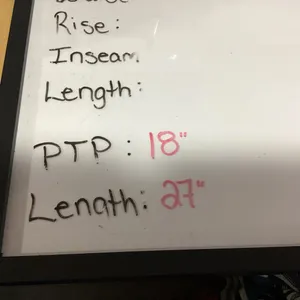 Rise:
Inseam
Length:
PTP: 18"
Length: 27"